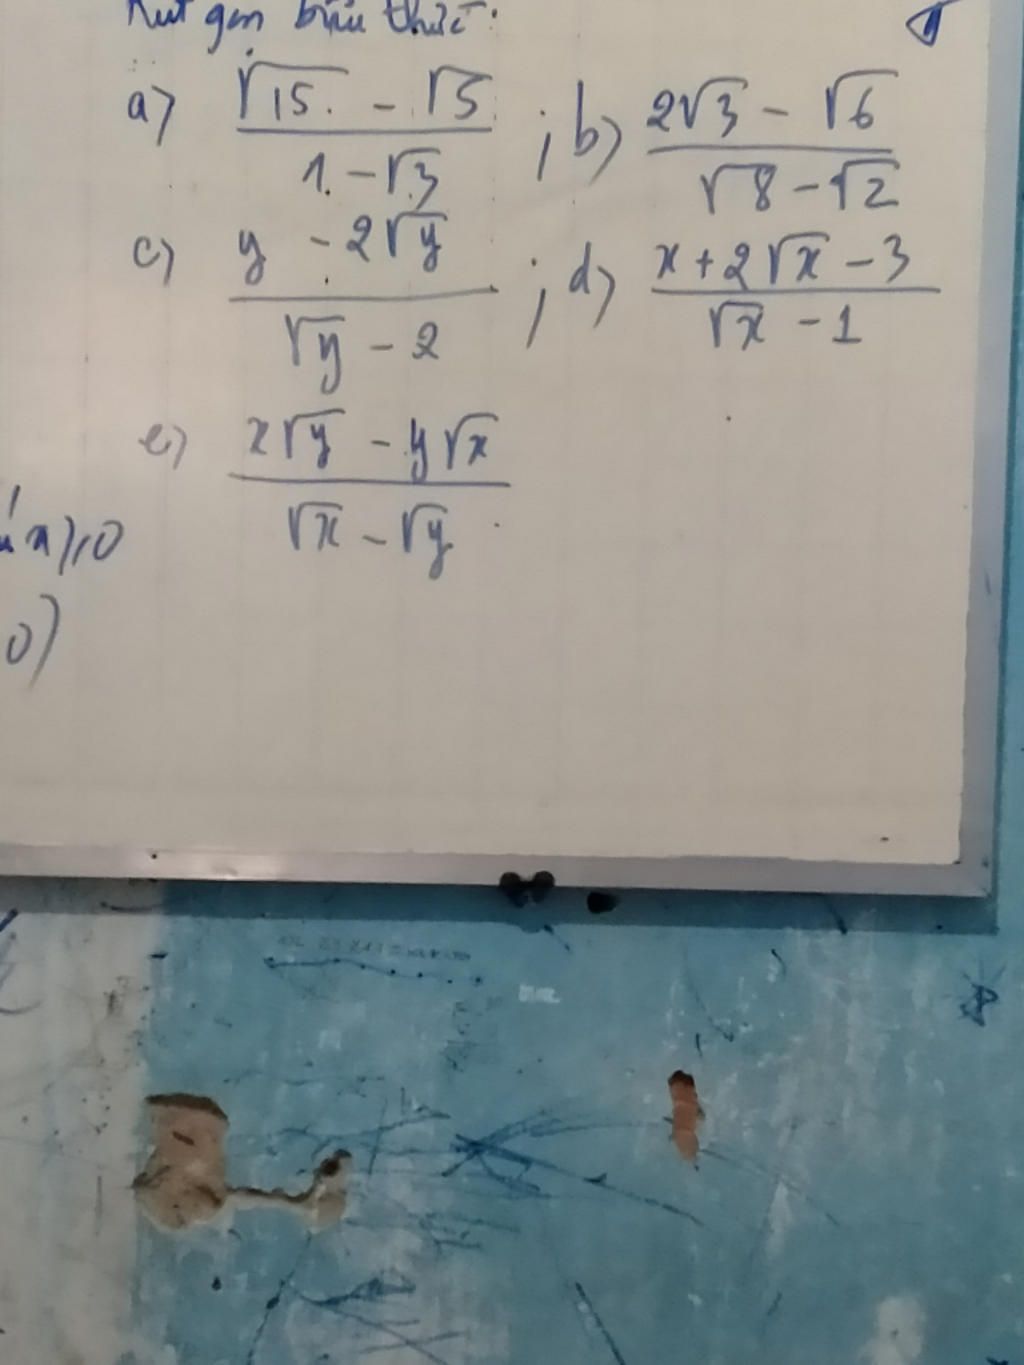 Rút gọn biểu thức:
a) \frac{\sqrt{15} - \sqrt{5}}{1 - \sqrt{3}} ; b) \frac{2\sqrt{3} - \sqrt{6}}{\sqrt{8} - \sqrt{2}}
c) \frac{y - 2\sqrt{y}}{\sqrt{y} - 2} ; d) \frac{x + 2\sqrt{x} - 3}{\sqrt{x} - 1}
e) \frac{x\sqrt{y} - y\sqrt{x}}{\sqrt{x} - \sqrt{y}}
0)